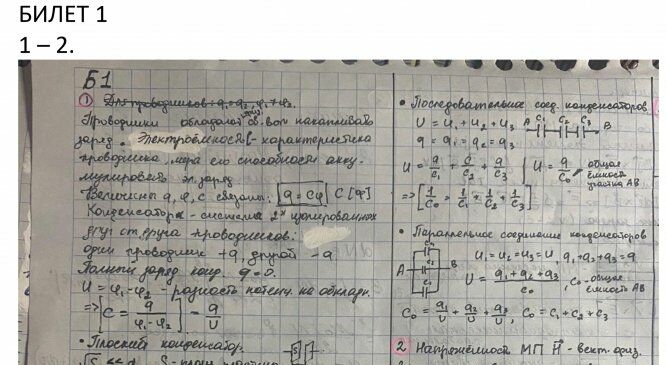 БИЛЕТ 1
1 – 2.
Б1
① Для проводников: q₁ = q₂, φ₁ + φ₂.
Проводники обладают св-вом накапливать
заряд. Электроёмкость – характеристика
проводника, мера его способности акку-
мулировать эл. заряд.
Величины q, φ, C связаны: q = Cφ C [Ф]
Конденсатор – система 2ˣ изолированных
друг от друга проводников:
один проводник +q, другой -q.
Полный заряд конд. q = 0.
U = φ₁ - φ₂ – разность потенц. на обкладк.
=> [C = q/(φ₁ - φ₂)] = q/U
• Плоский конденсатор.
√S << d
• Последовательное соед. конденсаторов
U = U₁ + U₂ + U₃ A C₁ C₂ C₃ B
q = q₁ = q₂ = q₃
U = q/C₁ + q/C₂ + q/C₃ | U = q/C₀, общая ёмкость участка AB
=> [1/C₀ = 1/C₁ + 1/C₂ + 1/C₃]
• Параллельное соединение конденсаторов
A C₁ C₂ C₃ B U₁ = U₂ = U₃ = U, q₁ + q₂ + q₃ = q
U = (q₁ + q₂ + q₃)/C₀, C₀ – общая ёмкость AB
C₀ = q₁/U + q₂/U + q₃/U, C₀ = C₁ + C₂ + C₃
2 Напряжённость МП H⃗ – вект. физ.